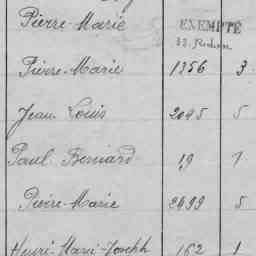 Pierre-Marie EXEMPTÉ
Pierre-Marie 1356 3
Jean Louis 2095 5
Paul Bernard 19 1
Pierre-Marie 2499 5
Henri-Marie-Joseph 162 1